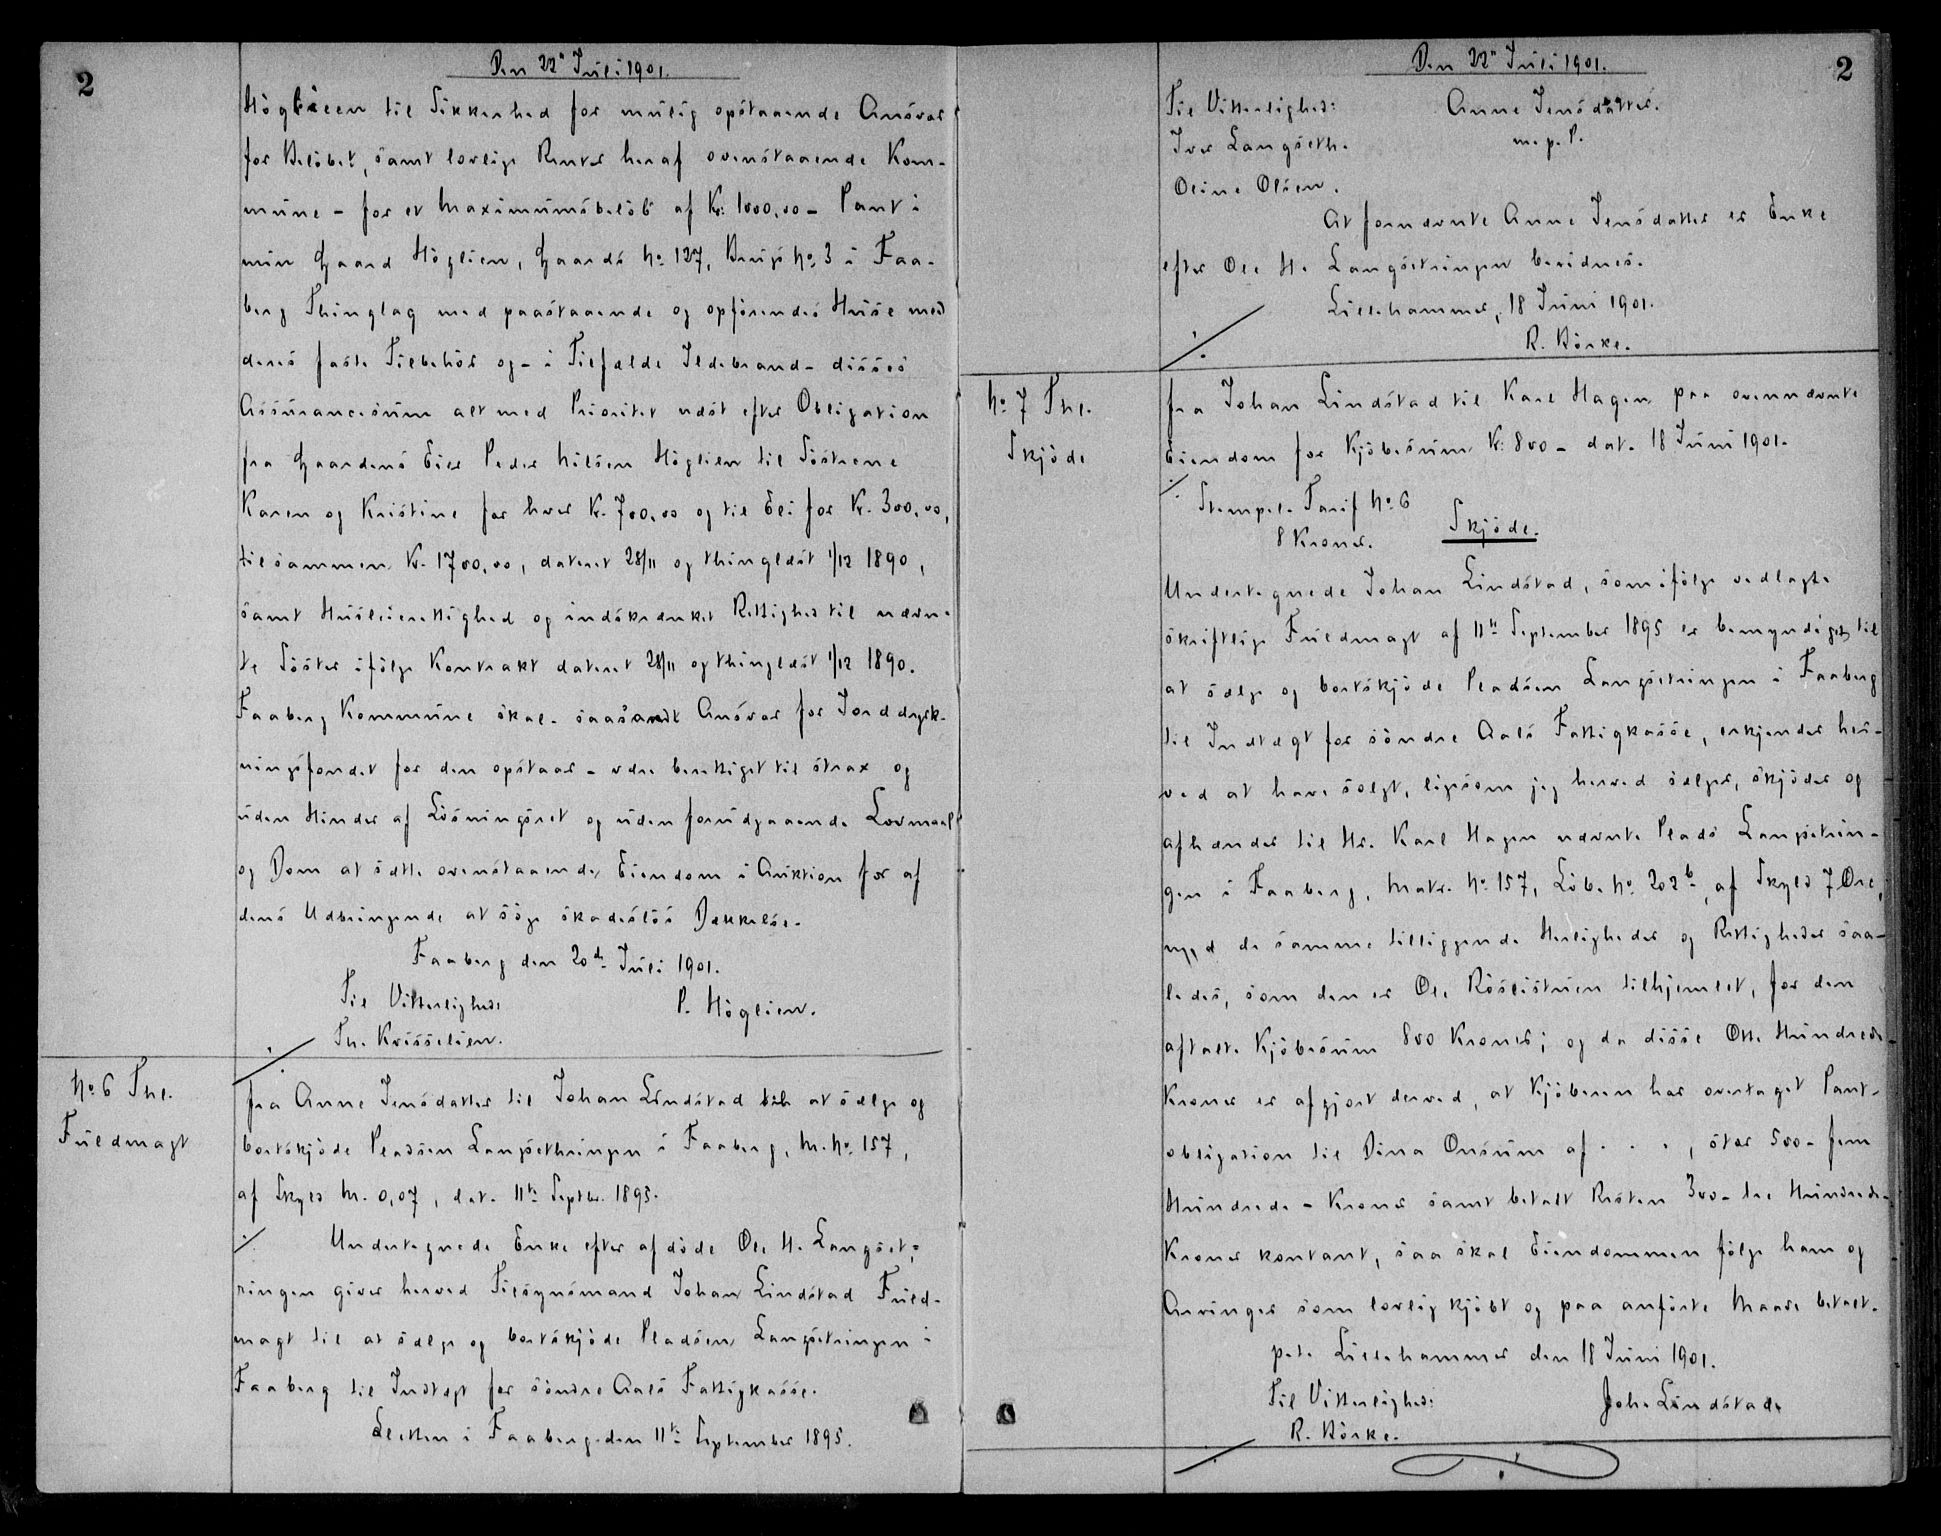 2
Den 22n Juli 1901.
Höglieen til Sikkerhed for mulig opstaaende Ansvar
for Beløbet, samt lovlige Renter heraf ovenstaaende Kom-
mune - for et Maximumsbeløb af Kr. 1000,00 - Pant i
min Gaard Höglien, Gaards No. 127, Brugs No. 3 i Faa-
berg Thinglag med paastaaende og opførendes Huse med
deres faste Tilbehør og - i Tilfælde Ildebrand - disses
Assurancesum alt med Prioritet næst efter Obligation
fra Gaardens Eier Peder Nilsen Höglien til Søstrene
Karen og Kristine for hver Kr. 700,00 og til Eli for Kr. 300,00,
tilsammen Kr. 1700,00, dateret 28/11 og thinglæst 1/12 1890,
samt Husleierettighed og indskrænket Rettighed til nævn-
te Søster ifølge Kontrakt dateret 28/11 og thinglæst 1/12 1890.
Faaberg Kommune skal - saasandt Ansvar for Jorddyrk-
ningsfondet for den opstaar - være berettiget til strax og
uden Hinder af Løsningsret og uden forudgaaende Lovmaal
og Dom at sætte ovenstaaende Eiendom i Auktion for af
dens Udbringende at søge skadesløs Dækkelse.
Faaberg den 20de Juli 1901.
Til Vitterlighed: P. Höglien.
Th. Krisselien.
No. 6 Thl.
Fuldmagt
fra Anne Jensdatter til Johan Lindstad til at sælge og
bortskjøde Pladsen Langsethringen i Faaberg, M. No. 157,
af Skyld M. 0,07, dat. 11te Septbr. 1895.
Undertegnede Enke efter afdøde Ole H. Langset-
ringen giver herved Tilsynsmand Johan Lindstad Fuld-
magt til at sælge og bortskjøde Pladsen Langsetringen i
Faaberg til Indtægt for søndre Aals Fattigkasse.
Sletten i Faaberg den 11te September 1895.
Den 22n Juli 1901.
2
Til Vitterlighed: Anne Jensdatter.
Iver Langseth. m. p. P.
Oline Olsen.
At fornævnte Anne Jensdatter er Enke
efter Ole H. Langsetringen bevidnes.
Lillehammer, 18 Juni 1901.
R. Börke.
No. 7 Thl.
Skjøde
fra Johan Lindstad til Karl Hagen paa ovennævnte
Eiendom for Kjøbesum Kr. 800 - dat. 18 Juni 1901.
Stempel. Tarif No. 6
8 Kroner. Skjøde.
Undertegnede Johan Lindstad, som ifølge vedlagte
skriftlige Fuldmagt af 11te September 1895 er bemyndiget til
at sælge og bortskjøde Pladsen Langsetringen i Faaberg
til Indtægt for søndre Aals Fattigkasse, erkjender her-
ved at have solgt, ligesom jeg herved sælger, skjøder og
afhænder til Hr. Karl Hagen nævnte Plads Langsetrin-
gen i Faaberg, Matr. No. 157, Löb. No. 202b, af Skyld 7 Øre,
med de samme tilliggende Herligheder og Rettigheder saa-
ledes, som den er Ole Röslistuen tilhjemlet, for den
aftalte Kjøbesum 800 Kroner; og da disse Otte Hundrede
Kroner er afgjort derved, at Kjøberen har overtaget Pant-
obligation til Dina Onsum af . . . , stor 500 - fem
Hundrede - Kroner samt betalt Resten 300 - tre Hundrede -
Kroner kontant, saa skal Eiendommen følge ham og
Arvinger som lovlig kjøbt og paa anførte Maade betalt.
p.t. Lillehammer den 18 Juni 1901.
Til Vitterlighed: Joh. Lindstad.
R. Börke.